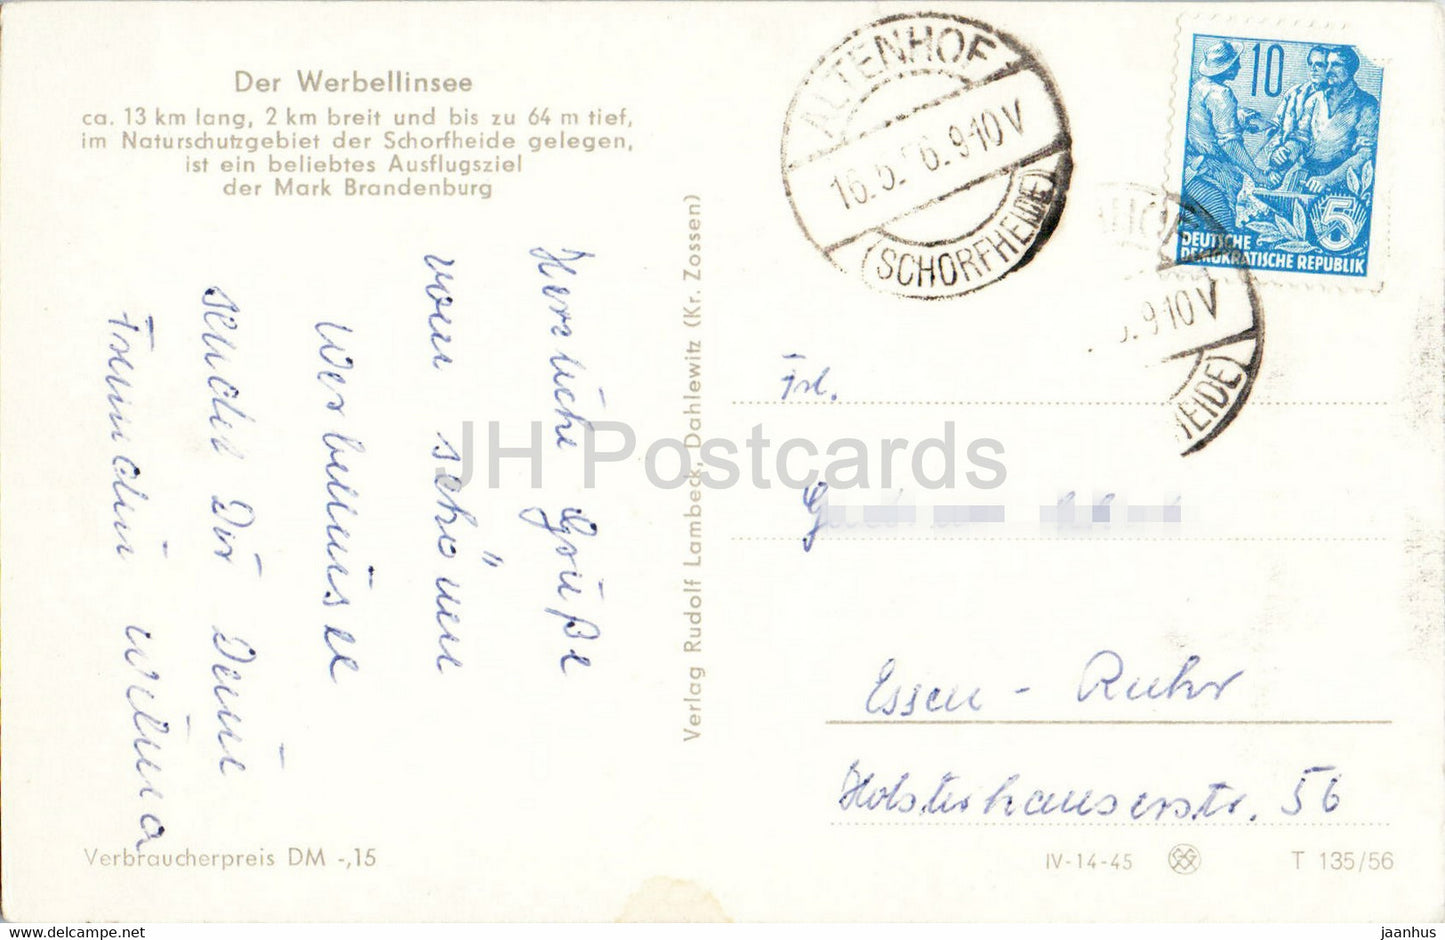 Der Werbellinsee
ca. 13 km lang, 2 km breit und bis zu 64 m tief,
im Naturschutzgebiet der Schorfheide gelegen,
ist ein beliebtes Ausflugsziel
der Mark Brandenburg
Herzliche Grüße
vom schönen
Werbellinsee
sendet Dir Deine
Freundin
Verbraucherpreis DM -,15
Verlag Rudolf Lambeck, Dahlewitz (Kr. Zossen)
ALTENHOF
16.5.56.9-10V
(SCHORFHEIDE)
10
5
DEUTSCHE
DEMOKRATISCHE REPUBLIK
9-10V
HEIDE)
Frl.
Essen - Ruhr
Holsterhauserstr. 56
IV-14-45
T 135/56
JH Postcards
jaanhus